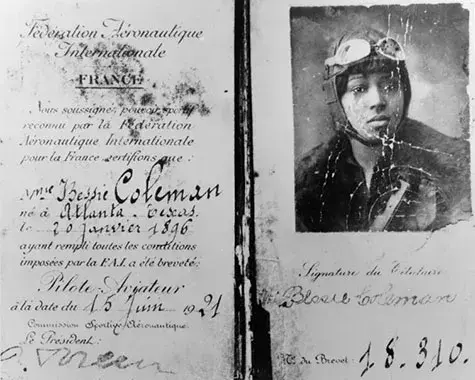 Fédération Aéronautique
Internationale
FRANCE
Nous soussignés, pouvoir sportif
reconnu par la Fédération
Aéronautique Internationale
pour la France certifions que :
Mme Bessie Coleman
né à Atlanta, Texas
le 20 janvier 1896
ayant rempli toutes les conditions
imposées par la F.A.I. a été breveté:
Pilote-Aviateur
à la date du 15 Juin 1921
Commission Sportive Aéronautique.
Le Président :
Signature du Titulaire
Bessie Coleman
No du Brevet : 18.310.